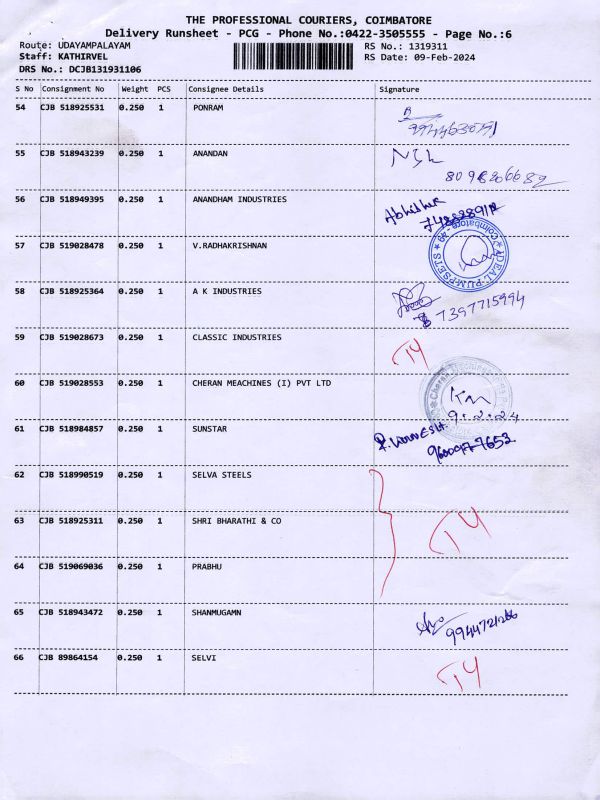 THE PROFESSIONAL COURIERS, COIMBATORE
Delivery Runsheet - PCG - Phone No.:0422-3505555 - Page No.:6
Route: UDAYAMPALAYAM
RS No.: 1319311
Staff: KATHIRVEL
RS Date: 09-Feb-2024
DRS No.: DCJB131931106
S No Consignment No Weight PCS Consignee Details Signature
54 CJB 518925531 0.250 1 PONRAM
55 CJB 518943239 0.250 1 ANANDAN
8098206682
56 CJB 518949395 0.250 1 ANANDHAM INDUSTRIES
57 CJB 519028478 0.250 1 V.RADHAKRISHNAN
IDEAL PUMPSETS
Coimbatore - 49
58 CJB 518925364 0.250 1 A K INDUSTRIES
7397715994
59 CJB 519028673 0.250 1 CLASSIC INDUSTRIES
T4
60 CJB 519028553 0.250 1 CHERAN MEACHINES (I) PVT LTD
9.2.24
61 CJB 518984857 0.250 1 SUNSTAR
9600977653
62 CJB 518990519 0.250 1 SELVA STEELS
63 CJB 518925311 0.250 1 SHRI BHARATHI & CO
T4
64 CJB 519069036 0.250 1 PRABHU
65 CJB 518943472 0.250 1 SHANMUGAMN
66 CJB 89864154 0.250 1 SELVI
T4